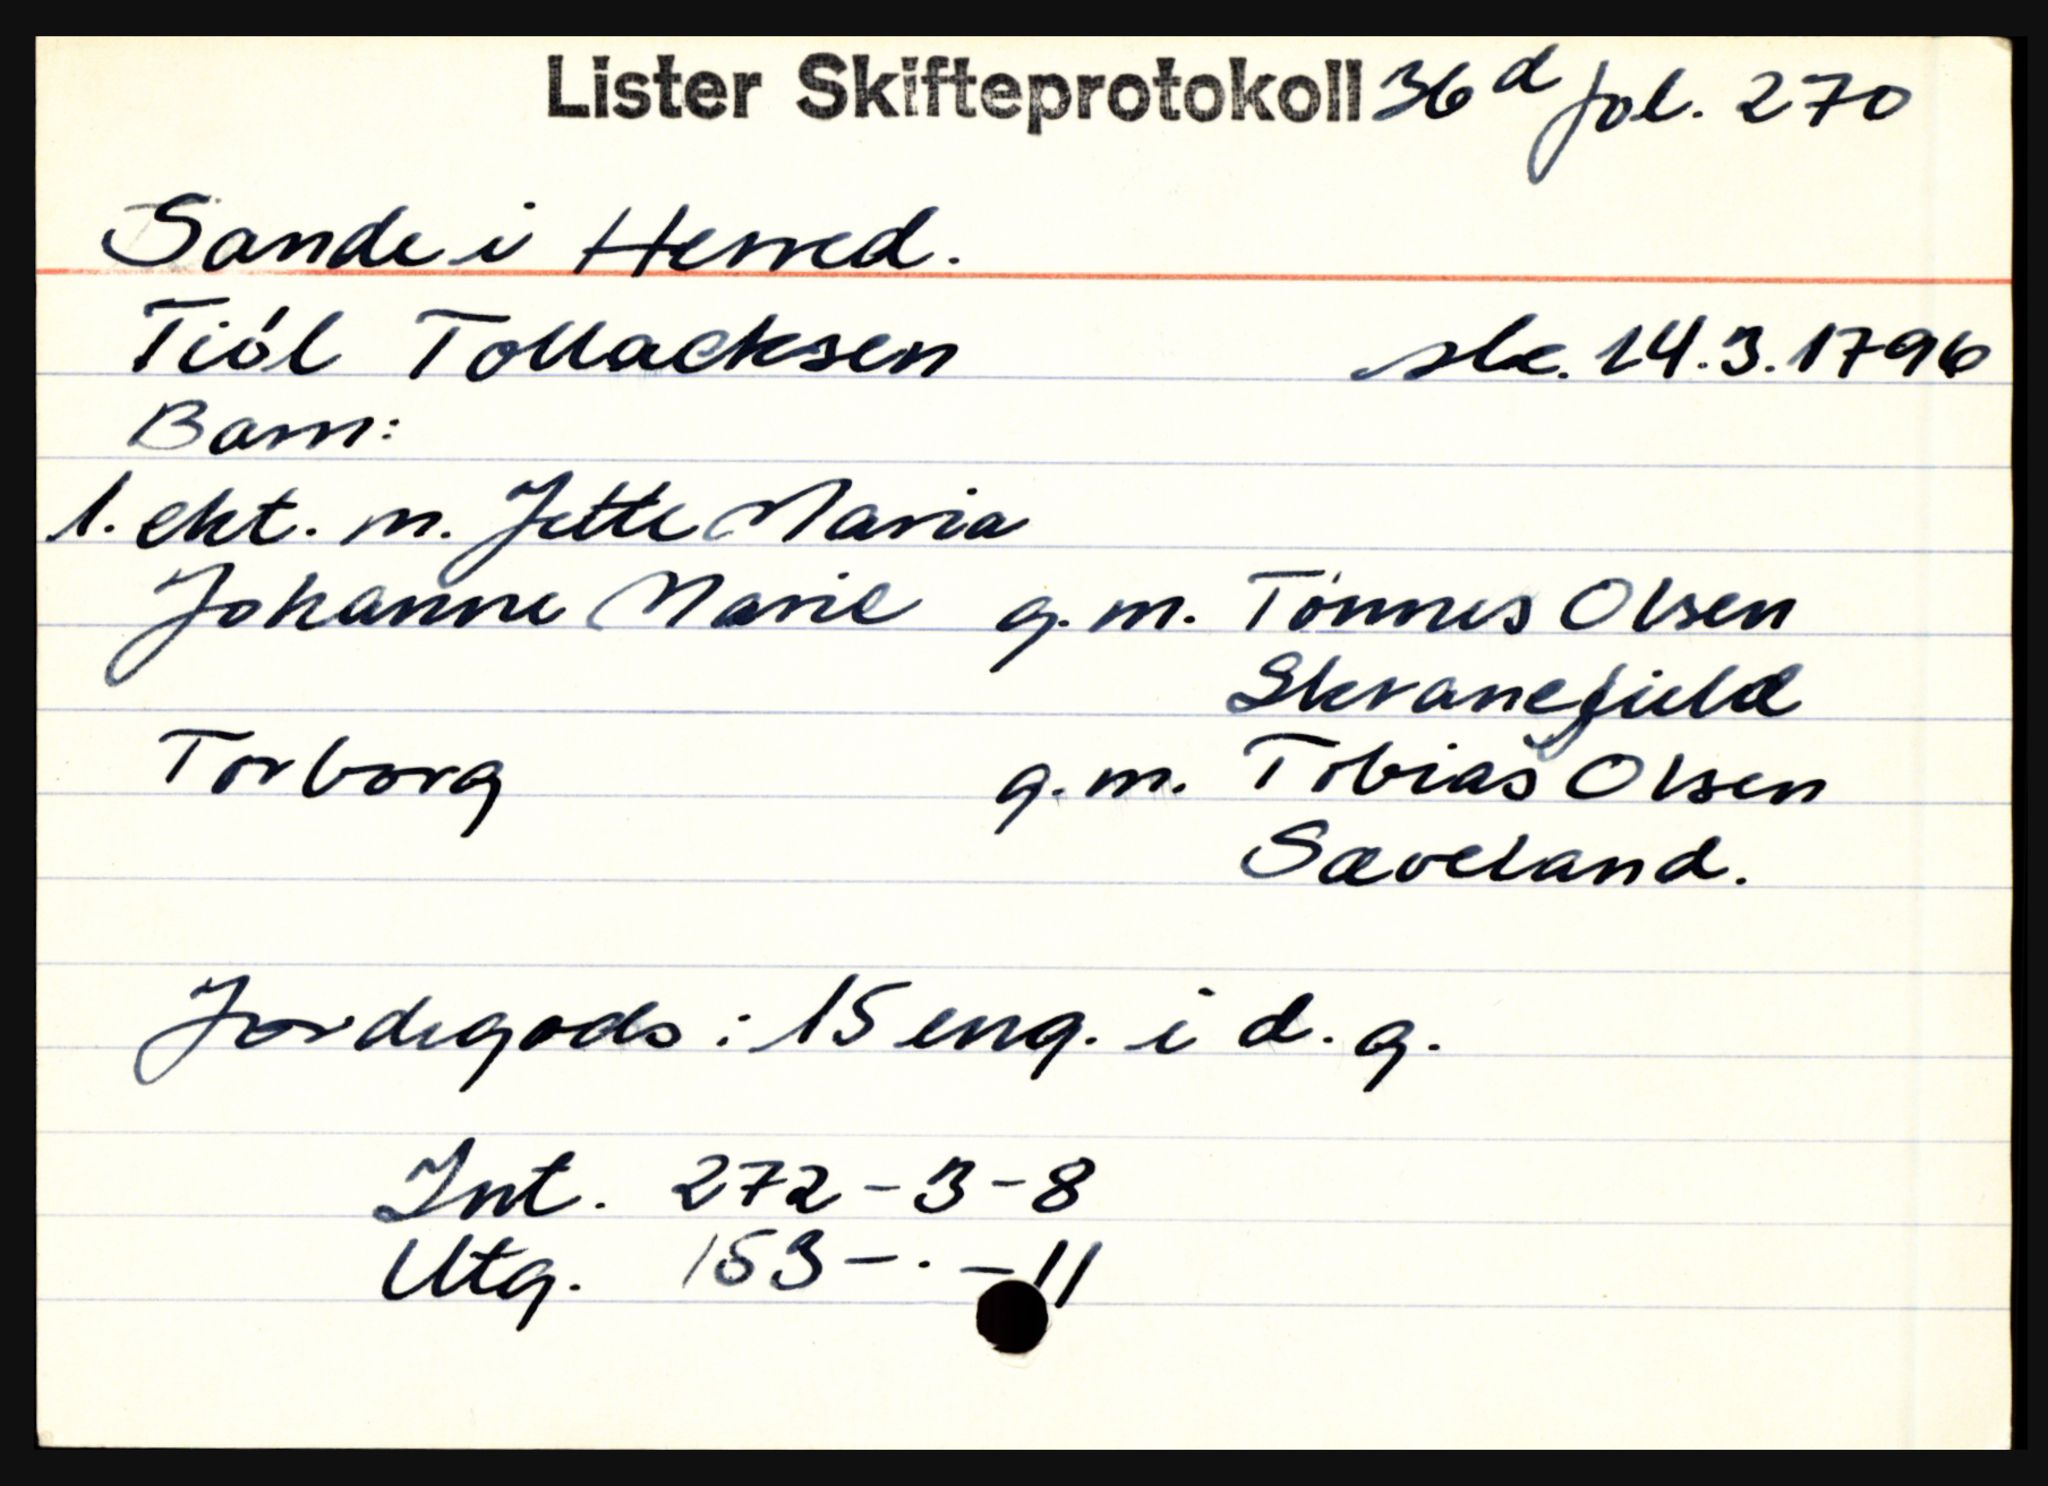 Lister Skifteprotokoll 36 d fol. 270
Sande i Herred.
Tiøl Tollacksen ske. 14.3.1796
Barn:
1. ekt. m. Jette Maria
Johanne Marie g.m. Tønnes Olsen
Skranefield
Torborg g.m. Tobias Olsen
Sæveland.
Jordegods: 15 eng. i d. g.
Int. 272-3-8
Utg. 153-·-11